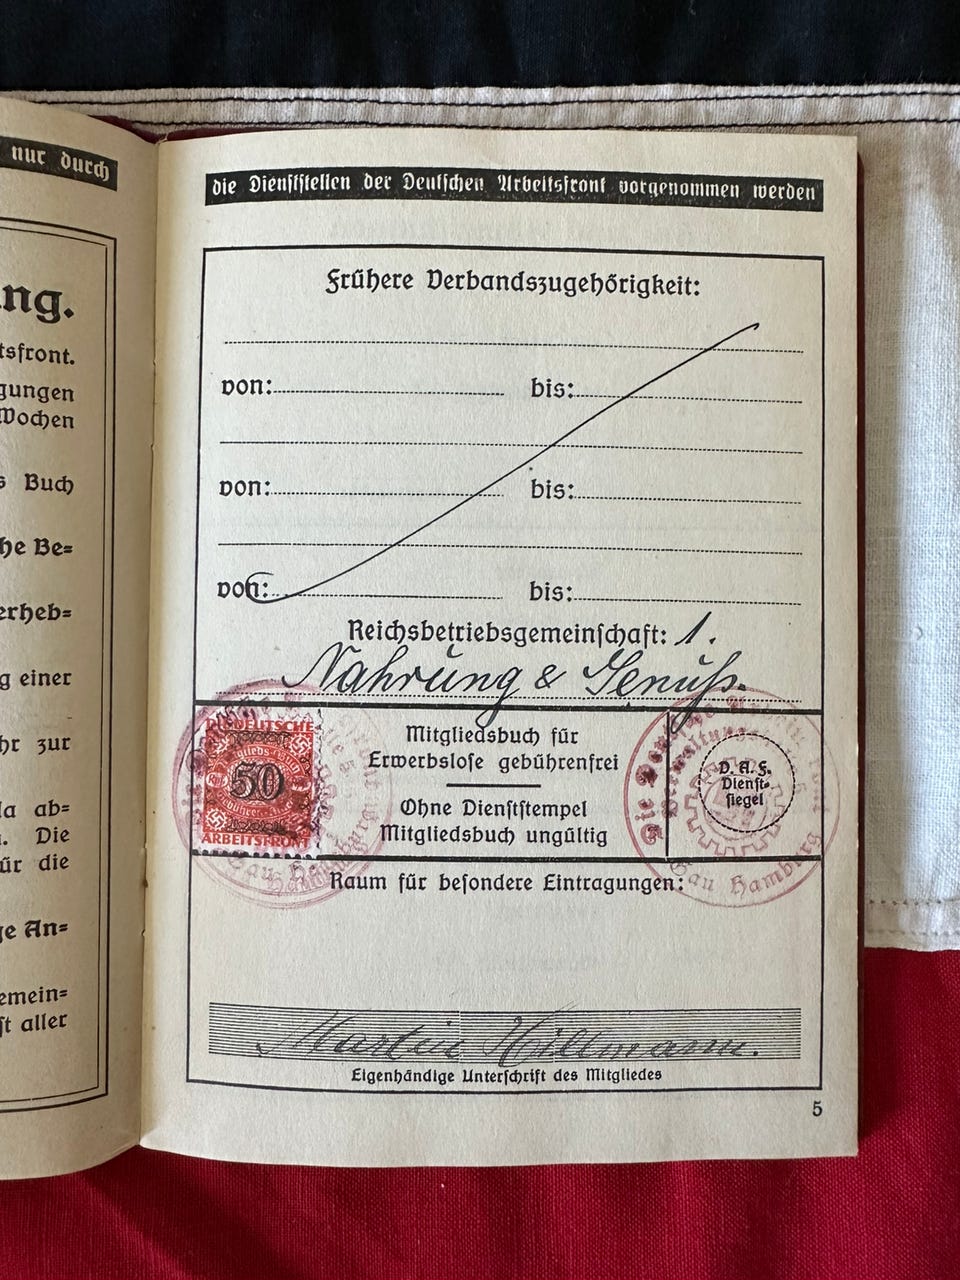 nur durch
ng.
tsfront.
gungen
Wochen
s Buch
he Be=
erheb=
g einer
hr zur
la ab=
. Die
ür die
ge An=
emein=
st aller
die Dienststellen der Deutschen Arbeitsfront vorgenommen werden
Frühere Verbandszugehörigkeit:
von: bis:
von: bis:
von: bis:
Reichsbetriebsgemeinschaft: 1.
Nahrung & Genuß.
DIE DEUTSCHE
50
ARBEITSFRONT
Mitgliedsbuch für
Erwerbslose gebührenfrei
Ohne Dienststempel
Mitgliedsbuch ungültig
D. A. F.
Dienst-
siegel
Die Deutsche Arbeitsfront
Gau Hamburg
Raum für besondere Eintragungen:
Martin Hillmann.
Eigenhändige Unterschrift des Mitgliedes
5